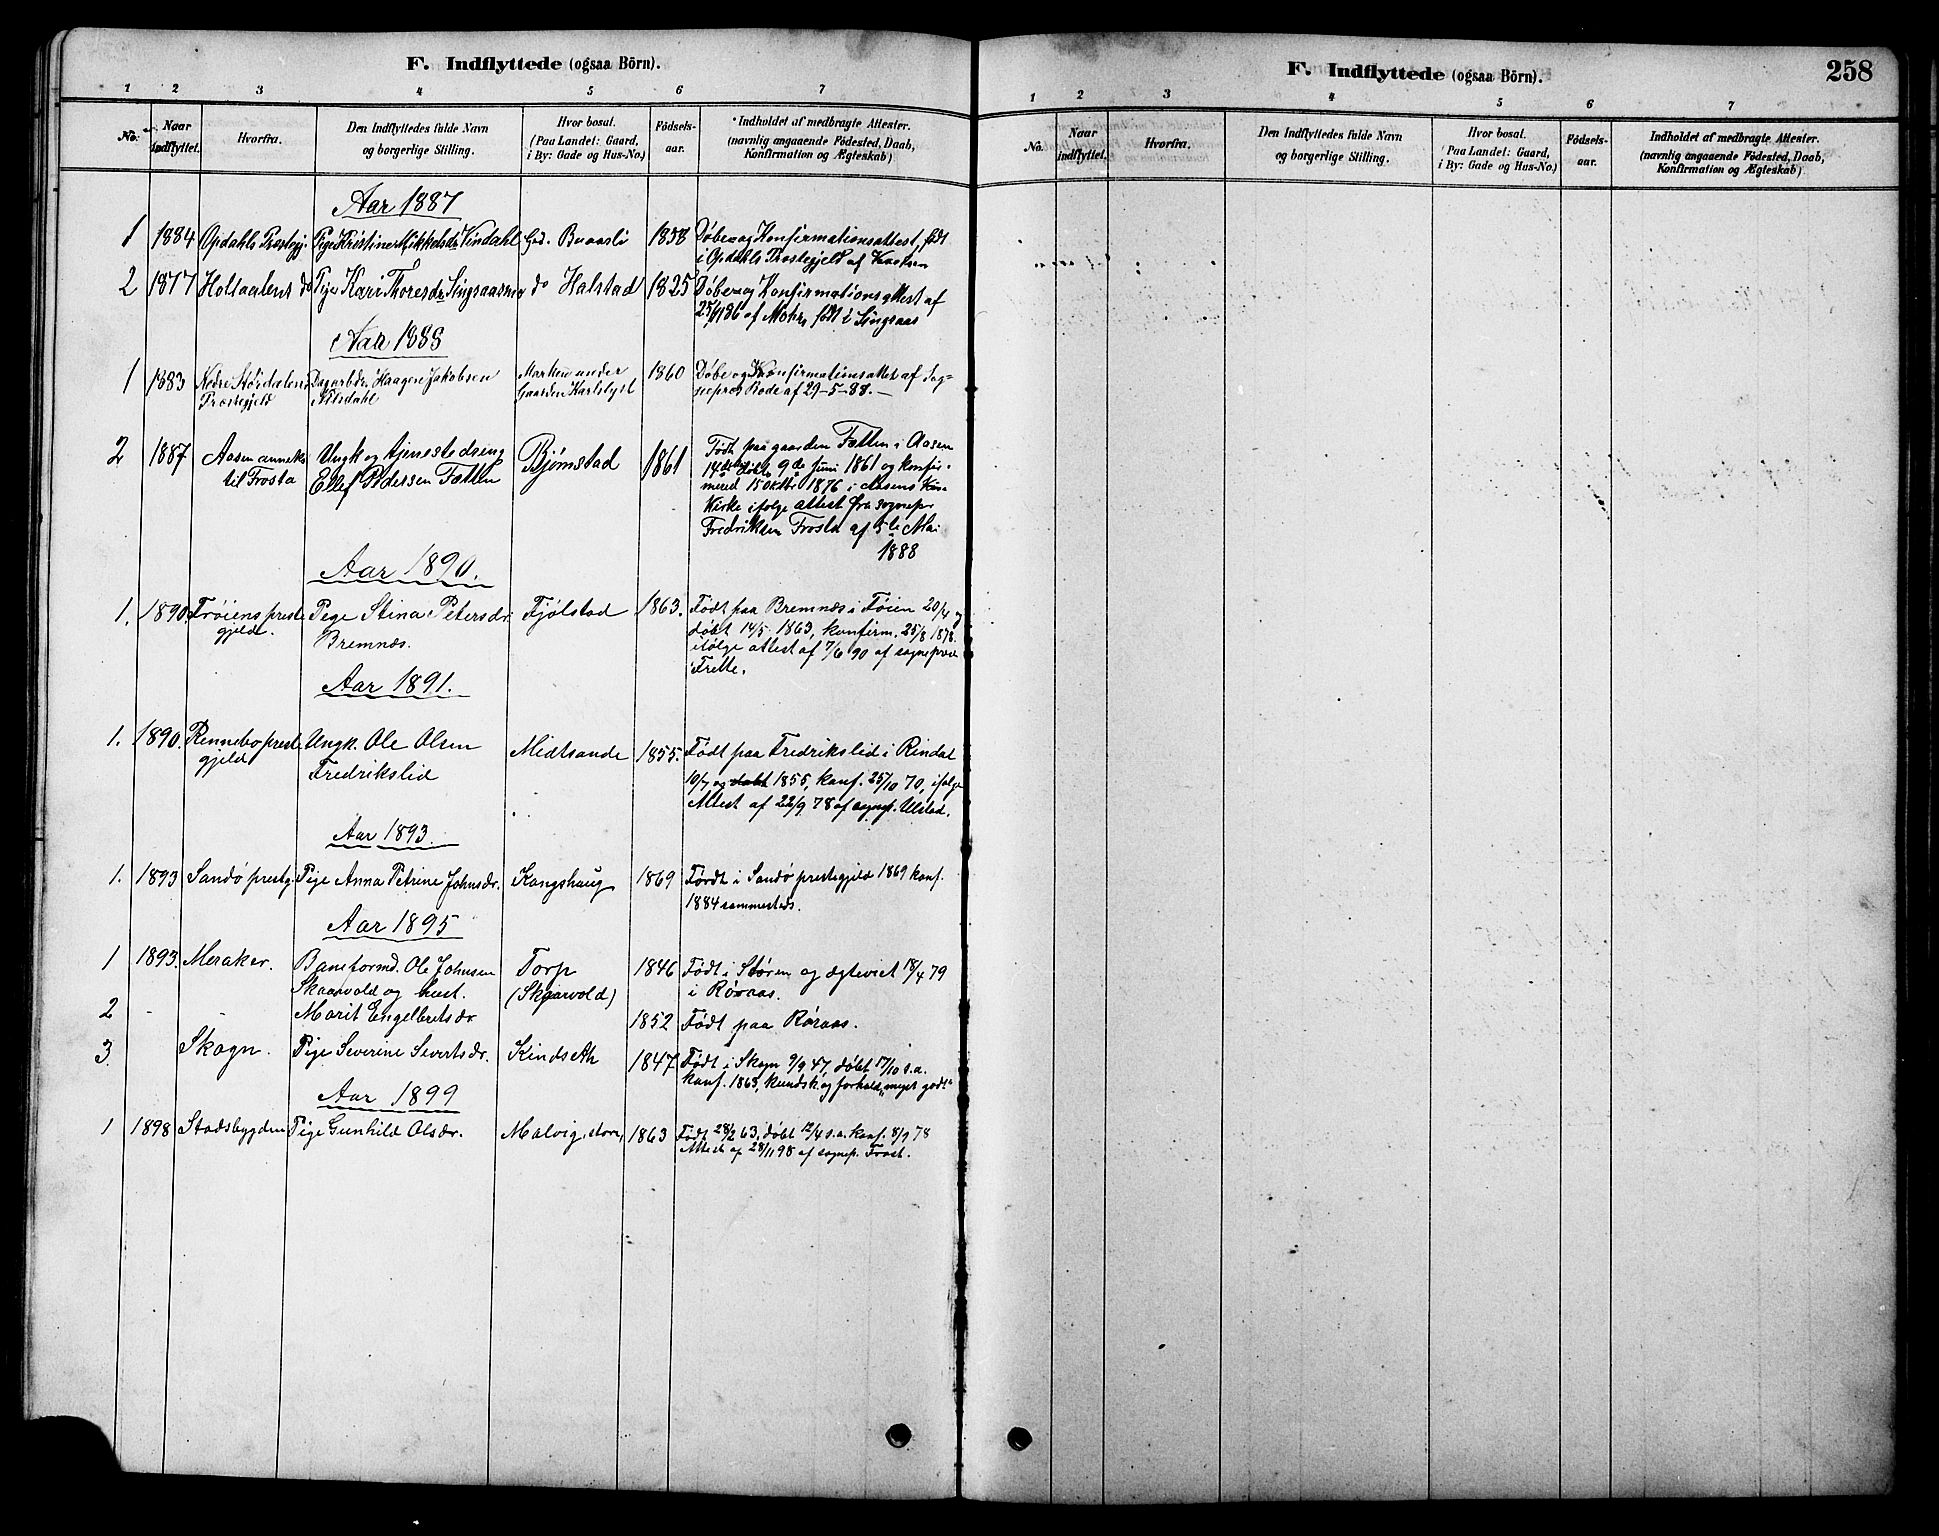 F. Indflyttede (ogsaa Börn).
1 2 3 4 5 6 7
No. Naar indflyttet. Hvorfra. Den Indflyttedes fulde Navn og borgerlige Stilling. Hvor bosat. (Paa Landet: Gaard, i By: Gade og Hus-No.) Fødsels-aar. Indholdet af medbragte Attester. (navnlig angaaende Fødested, Daab, Konfirmation og Ægteskab)
Aar 1887
1 1884 Opdahls Præstegj. Pige Kristine Mikkelsdr Vindahl Grd. Buaasli 1858 Døbe og Konfirmationsattest, født
i Opdahls Præstegjeld af
2 1877 Holtaalens do Pige Kari Thoresdr Singsaasmo do Halstad 1825 Døbe og Konfirmationsattest af
25/1186 af Mohr, født i Singsaas
Aar 1888
1 1883 Nedre Stördalens Dagarbdr. Haagen Jakobsen Marken under 1860 Døbe og Konfirmationsattest af Sog=
Præstegjeld Gaarden Karlslyst nepræst Rode af 29-5-88.—
2 1887 Aasen anneks Ungk og tjenestedreng Bjørnstad 1861 Født paa gaarden Fætten i Aasen
til Frosta Ellef Pedersen Fætten 14de døbt 9de Juni 1861 og konfir-
mered 15 Oktbr 1876 i Aasens
Kirke ifølge attest fra sognepr
Fredriksen Frosta af 5te Mai
1888
Aar 1890.
1. 1890 Frøiens preste Pige Stina Petersdr. Fjølstad 1863. Født paa Bremnæs i Føien 20/4 og
gjeld. Bremnæs. døbt 14/5 1863, konfirm. 25/8 1878
ifølge attest af 7/6 90 af sogneprest
i Frette.
Aar 1891.
1. 1890. Rennebo preste Ungk. Ole Olsen Midtsande 1855. Født paa Fredrikslid i Rindal
gjeld Fredrikslid 10/7 og døbt 1855, konf. 25/10 70, ifølge
Attest af 22/9 78 af sognep. Ulstad.
Aar 1893.
1. 1893 Sandø prestg. Pige Anna Petrine Johnsdr. Kongshaug 1869 Førdt i Sandø prestegjeld 1869 konf.
1884 sammesteds.
Aar 1895
1 1893. Meraker. Baneformd. Ole Johnsen Torp 1846 Født i Støren og ægteviet 18/4 79
Skaarvold og hust. (Skjarvold) i Røraas.
2 - - Marit Engelbretsdr 1852 Født paa Røraas.
3 Skogn. Pige Severine Sivertsdr. Kindseth 1847 Født i Skogn 9/9 47, døbt 17/10 s.a.
konf. 1863, kundsk. og forhold „meget godt“
Aar 1899
1 1898 Stadsbygden Pige Gunhild Olsdr. Malvig, store, 1863 Født 28/2 63, døbt 12/4 s.a. konf. 8/9 78
Attest af 28/11 98 af sognep. Frost.
F. Indflyttede (ogsaa Börn). 258
1 2 3 4 5 6 7
No. Naar indflyttet. Hvorfra. Den Indflyttedes fulde Navn og borgerlige Stilling. Hvor bosat. (Paa Landet: Gaard, i By: Gade og Hus-No.) Fødsels-aar. Indholdet af medbragte Attester. (navnlig angaaende Fødested, Daab, Konfirmation og Ægteskab)